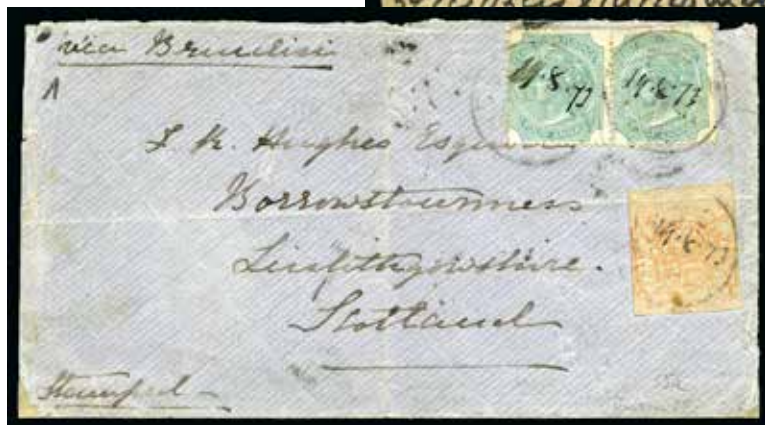 via Brindisi
19.8.73 19.8.73
J. R. Hughes Esquire
Borrowstounness
19.8.73
Linlithgowshire.
Scotland
Stamped